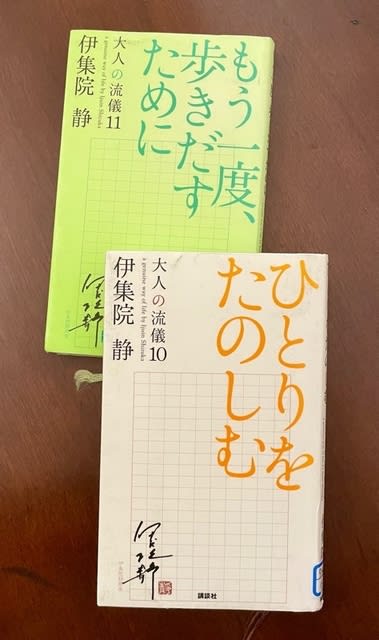 もう一度、
歩きだす
ために
大人の流儀11
a genuine way of life by Ijuin Shizuka
伊集院 静
ひとりを
たのしむ
大人の流儀10
a genuine way of life by Ijuin Shizuka
伊集院 静
講談社